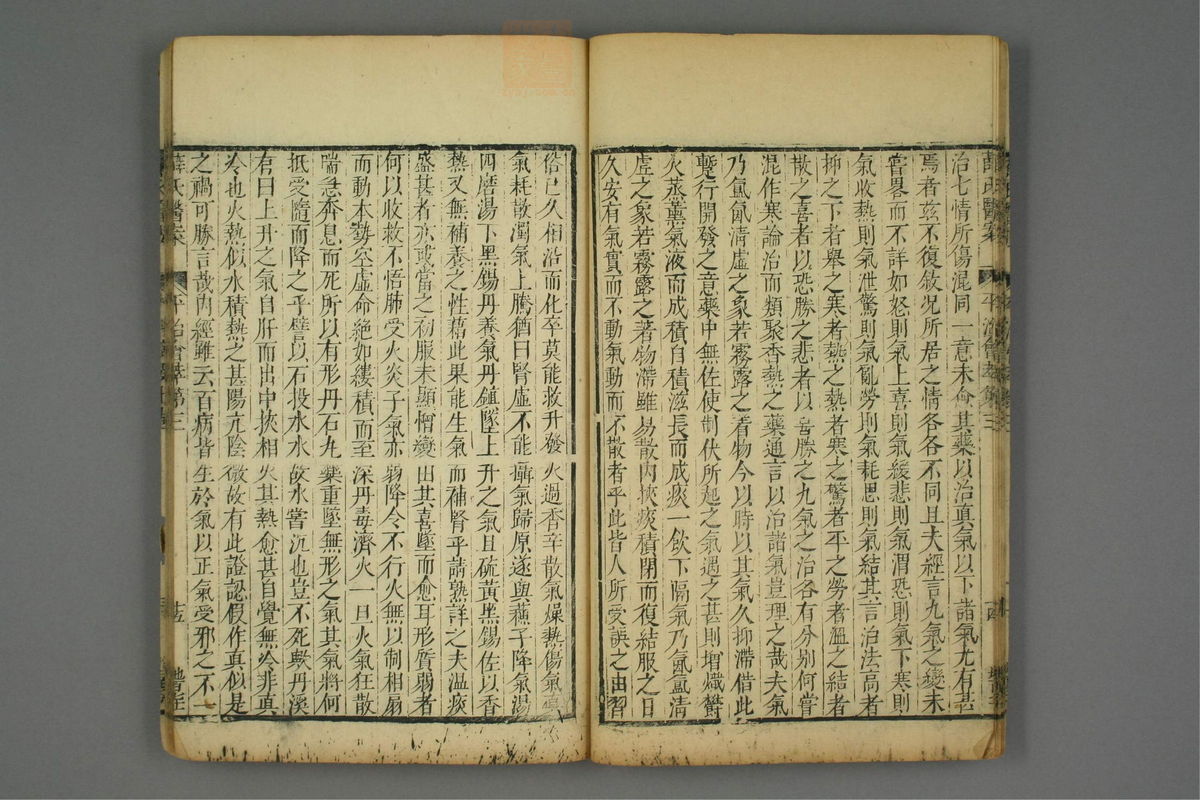 治七情所傷混同一意未會其藥以治真氣以下諸氣尤有甚
焉者茲不復敘况所居之情各各不同且夫經言九氣之變未
嘗畧而不詳如怒則氣上喜則氣緩悲則氣消恐則氣下寒則
氣收熱則氣泄驚則氣亂勞則氣耗思則氣結其言治法高者
抑之下者舉之寒者熱之熱者寒之驚者平之勞者溫之結者
散之喜者以恐勝之悲者以喜勝之九氣之治各有分别何嘗
混作寒論治而類聚香熱之藥通言以治諸氣豈理之哉夫氣
乃氤氲清虛之象若霧露之着物今以時以其氣久抑滯借此
蹔行開發之意藥中無佐使制伏所起之氣過之甚則增熾欝
火蒸薰氣液而成積自積滋長而成痰一飲下膈氣乃氤氲清
虛之象若霧露之著物滯雖易散内挾痰積閉而復結服之日
久安有氣實而不動氣動而不散者乎此皆人所受誤之由習
俗已久相沿而化卒莫能救升發火過香辛散氣燥熱傷氣真
氣耗散濁氣上騰猶曰腎虛不能攝氣歸原遂與蘇子降氣湯
四磨湯下黑錫丹養氣丹鎮墜上升之氣且硫黄黑錫佐以香
熱又無補養之性藉此果能生氣而補腎乎請熟詳之夫溫痰
盛甚者亦或當之初服未顯㬱變由其喜墜而愈耳形質弱者
何以收救不悟肺受火炎子氣亦弱降令不行火無以制相扇
而動本勢空虛命絶如縷積而至深丹毒濟火一旦火氣狂散
喘急奔息而死所以有形丹石丸藥重墜無形之氣其氣將何
抵受隨而降之乎譬以石投水水故水嘗沉也豈不死歟丹溪
有曰上升之氣自肝而出中挾相火其熱愈甚自覺無冷非真
冷也火熱似水積熱之甚陽亢陰微故有此證認假作真似是
之禍可勝言哉内經雖云百病皆生於氣以正氣受邪之不一
薛氏醫案
平治會萃第三